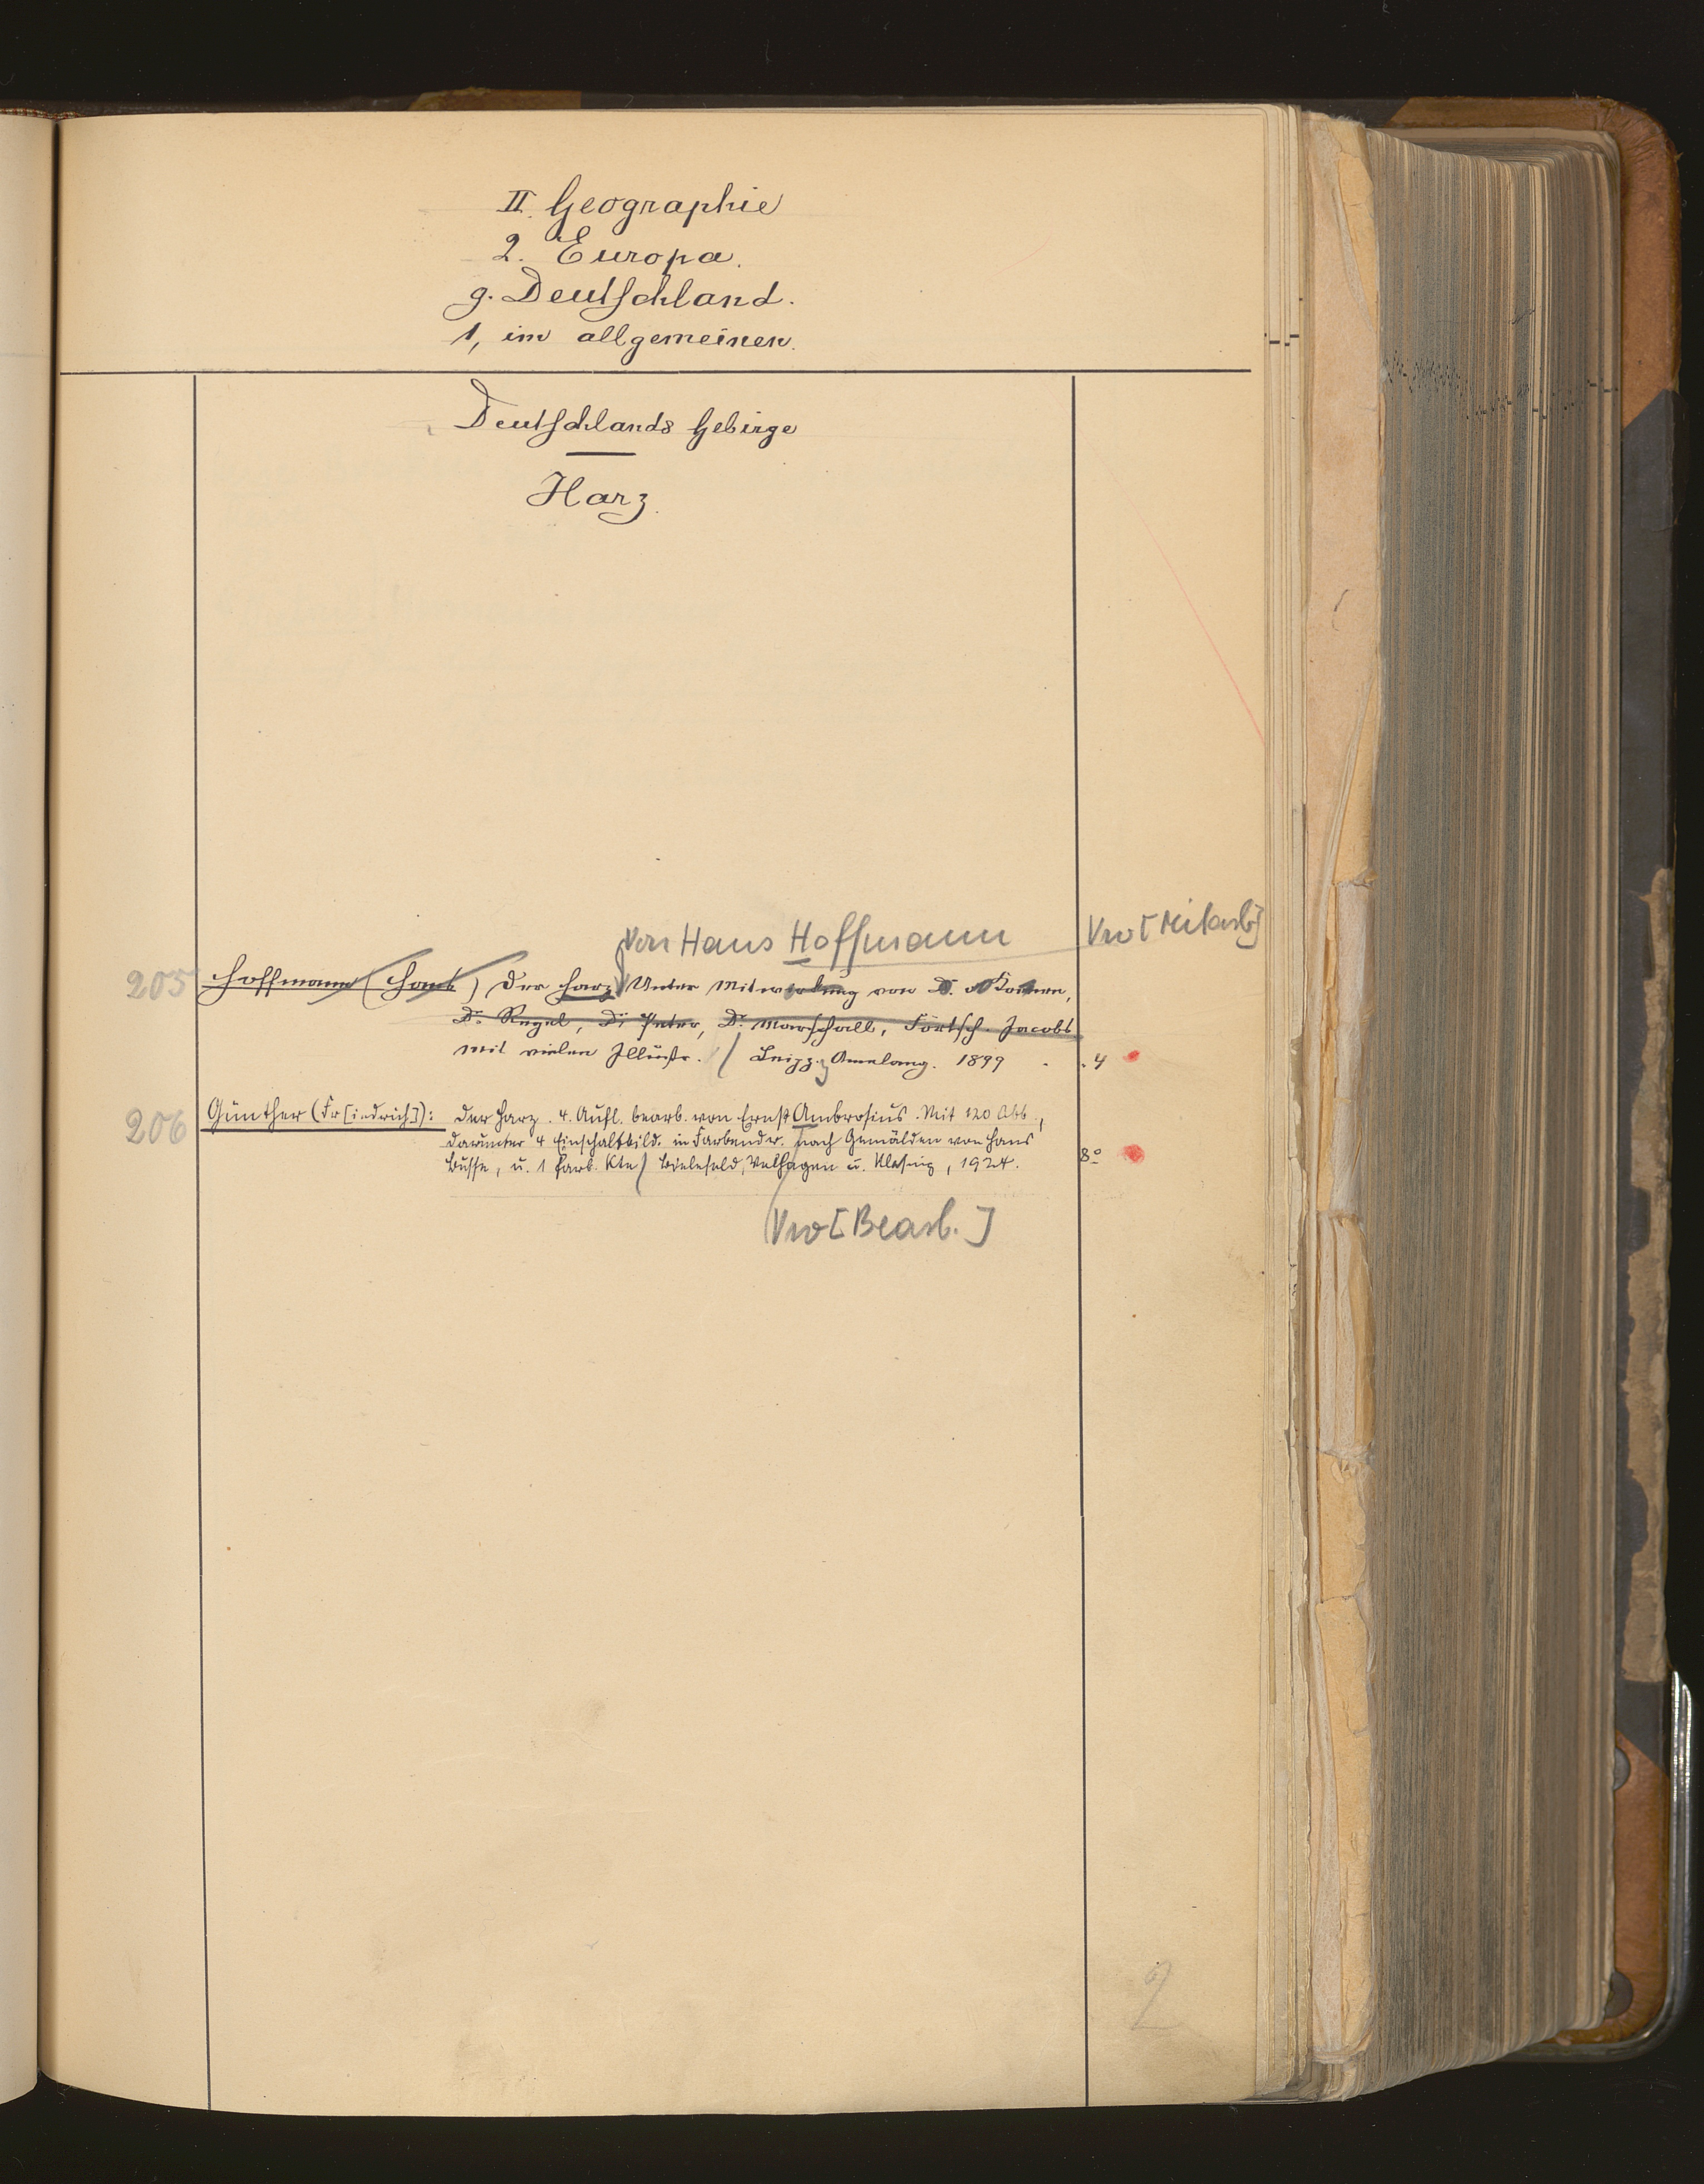 II. Geographie
2. Europa.
g. Deutschland.
1, im allgemeinen.
Deutschlands Gebirge
Harz.
von Hans Hoffmann
Vw [Mitarb]
205 Hoffmann (Hans) Der Harz Unter Mitwirkung von Dr. v. Koenen,
Dr. Regel, Dr. Peter, Dr. Marschall, Förtsch. Jacobs
mit vielen Illustr. Leipz. Amelang. 1899 . . 4
206 Günther (Fr[iedrich]): Der Harz. 4. Aufl. bearb. von Ernst Ambrosius. Mit 120 Abb.,
darunter 4 Einschaltbild. in Farbendr. nach Gemälden von Hans
Busse, u. 1 farb. Kte Bielefeld, Velhagen u. Klasing, 1924. 8°
Vw [Bearb.]
2